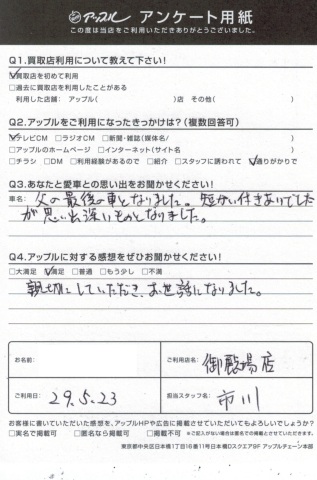 アップル アンケート用紙
この度は当店をご利用いただきありがとうございました。
Q1.買取店利用について教えて下さい!
☑買取店を初めて利用
□過去に買取店を利用したことがある
利用した店舗: アップル( )店 その他( )
Q2.アップルをご利用になったきっかけは?(複数回答可)
☑テレビCM □ラジオCM □新聞・雑誌(媒体名/ )
□アップルのホームページ □インターネット(サイト名 )
□チラシ □DM □利用経験があるので □紹介 □スタッフに誘われて ☑通りがかりで
Q3.あなたと愛車との思い出をお聞かせください!
車名: 父の最後の車となりました。短かい付きあいでした
が思い出深いものとなりました。
Q4.アップルに対する感想をぜひお聞かせください!
□大満足 ☑満足 □普通 □もう少し □不満
親切にしていただき、お世話になりました。
お名前:
ご利用店名: 御殿場店
ご利用日: 29.5.23
担当スタッフ名: 市川
お客様に書いていただいた感想を、アップルHPや広告に掲載させていただいてもよろしいでしょうか?
□実名で掲載可 □匿名なら掲載可 □掲載不可 ※ご記入がない場合は匿名での掲載とさせていただきます。
東京都中央区日本橋1丁目16番11号日本橋Dスクエア9F アップルチェーン本部